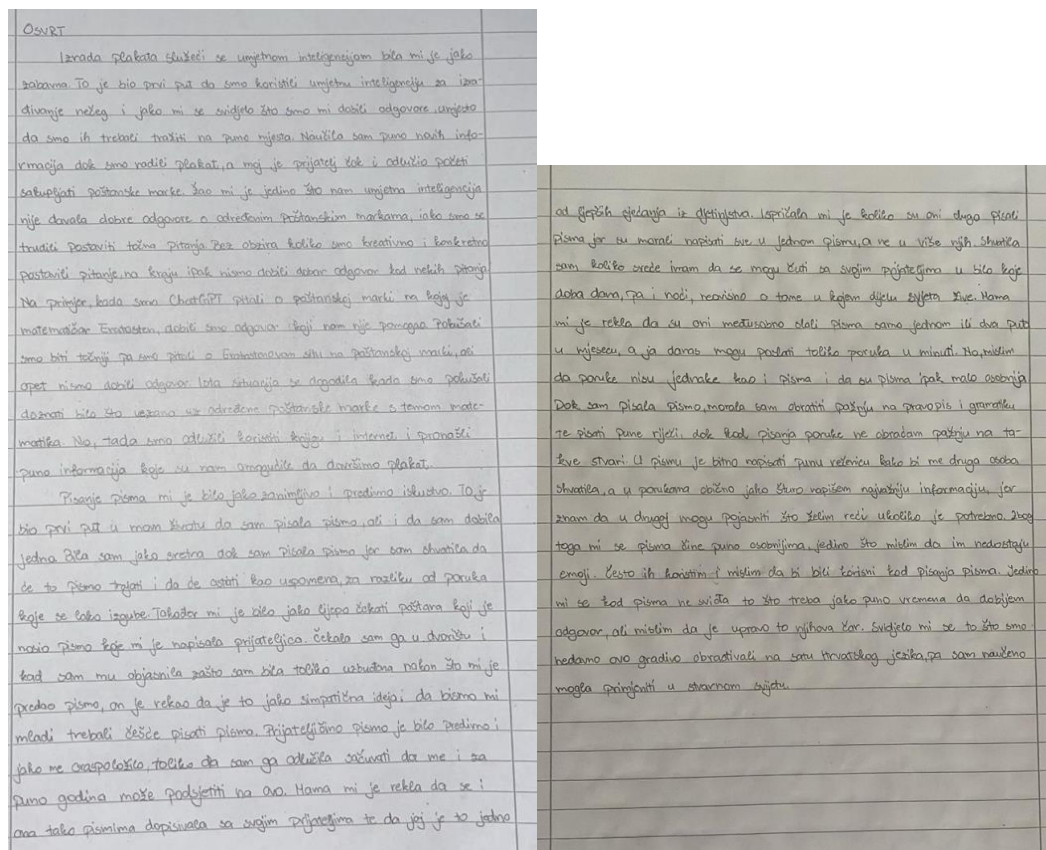 OSVRT
Izrada plakata služeći se umjetnom inteligencijom bila mi je jako
zabavna. To je bio prvi put da smo koristili umjetnu inteligenciju za izra-
đivanje nečeg i jako mi se svidjelo što smo mi dobili odgovore, umjesto
da smo ih trebali tražiti na puno mjesta. Naučila sam puno novih info-
rmacija dok smo radili plakat, a moj je prijatelj čak i odlučio početi
sakupljati poštanske marke. Žao mi je jedino što nam umjetna inteligencija
nije davala dobre odgovore o određenim poštanskim markama, iako smo se
trudili postaviti točna pitanja. Bez obzira koliko smo kreativno i konkretno
postavili pitanje, na kraju ipak nismo dobili dobar odgovor kod nekih pitanja.
Na primjer, kada smo ChatGPT pitali o poštanskoj marki na kojoj je
matematičar Eratosten, dobili smo odgovor koji nam nije pomogao. Pokušali
smo biti točniji pa smo pitali o Eratostenovom situ na poštanskoj marki, ali
opet nismo dobili odgovor. Ista situacija se dogodila kada smo pokušali
doznati bilo što vezano uz određene poštanske marke s temom mate-
matika. No, tada smo odlučili koristiti knjigu i internet i pronašli
puno informacija koje su nam omogućile da dovršimo plakat.
Pisanje pisma mi je bilo jako zanimljivo i predivno iskustvo. To je
bio prvi put u mom životu da sam pisala pismo, ali i da sam dobila
jedno. Bila sam jako sretna dok sam pisala pismo jer sam shvatila da
će to pismo trajati i da će ostati kao uspomena, za razliku od poruka
koje se lako izgube. Također mi je bilo jako lijepo čekati poštara koji je
nosio pismo koje mi je napisala prijateljica. Čekala sam ga u dvorištu i
kad sam mu objasnila zašto sam bila toliko uzbuđena nakon što mi je
predao pismo, on je rekao da je to jako simpatična ideja i da bismo mi
mladi trebali češće pisati pisma. Prijateljičino pismo je bilo predivno i
jako me oraspoložilo, toliko da sam ga odlučila sačuvati da me i za
puno godina može podsjetiti na ovo. Mama mi je rekla da se i
ona tako pismima dopisivala sa svojim prijateljima te da joj je to jedno
od ljepših sjećanja iz djetinjstva. Ispričala mi je koliko su oni dugo pisali
pisma jer su morali napisati sve u jednom pismu, a ne u više njih. Shvatila
sam koliko sreće imam da se mogu čuti sa svojim prijateljima u bilo koje
doba dana, pa i noći, neovisno o tome u kojem dijelu svijeta žive. Mama
mi je rekla da su oni međusobno slali pisma samo jednom ili dva put
u mjesecu, a ja danas mogu poslati toliko poruka u minuti. No, mislim
da poruke nisu jednake kao i pisma i da su pisma ipak malo osobnija.
Dok sam pisala pismo, morala sam obratiti pažnju na pravopis i gramatiku
te pisati pune riječi, dok kod pisanja poruke ne obraćam pažnju na ta-
kve stvari. U pismu je bitno napisati punu rečenicu kako bi me druga osoba
shvatila, a u porukama obično jako šturo napišem najvažniju informaciju, jer
znam da u drugoj mogu pojasniti što želim reći ukoliko je potrebno. Zbog
toga mi se pisma čine puno osobnijima, jedino što mislim da im nedostaju
emoji. Često ih koristim i mislim da bi bili korisni kod pisanja pisma. Jedino
mi se kod pisma ne sviđa to što treba jako puno vremena da dobijem
odgovor, ali mislim da je upravo to njihova čar. Svidjelo mi se to što smo
nedavno ovo gradivo obrađivali na satu Hrvatskog jezika, pa sam naučeno
mogla primjeniti u stvarnom svijetu.